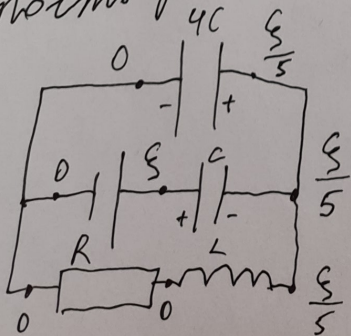 4C
0
ξ/5
-
+
0
ξ
C
+
-
ξ/5
R
L
0
0
ξ/5